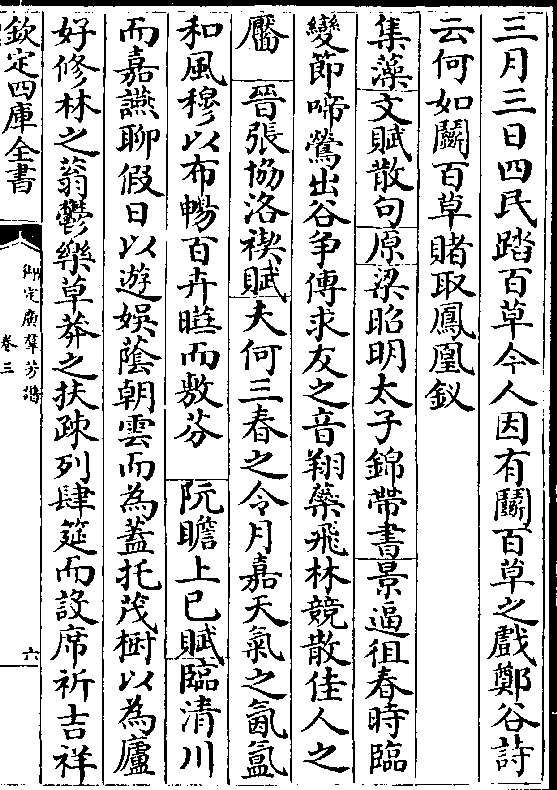 三月三日四民踏百草今人因有鬬百草之戲鄭谷詩
云何如鬬百草賭取鳳凰釵
集藻文賦散句原梁昭明太子錦帶書景逼徂春時臨
變節啼鶯出谷争傳求友之音翔蘂飛林競散佳人之
靨　晉張協洛禊賦夫何三春之令月嘉天氣之氤氲
和風穆以布暢百卉曄而敷芬　阮瞻上巳賦臨清川
而嘉讌聊假日以遊娛蔭朝雲而為蓋托茂樹以為廬
好修林之蓊鬱樂草莽之扶疎列肆筵而設席祈吉祥
欽定四庫全書
御定廣羣芳譜
卷三
六